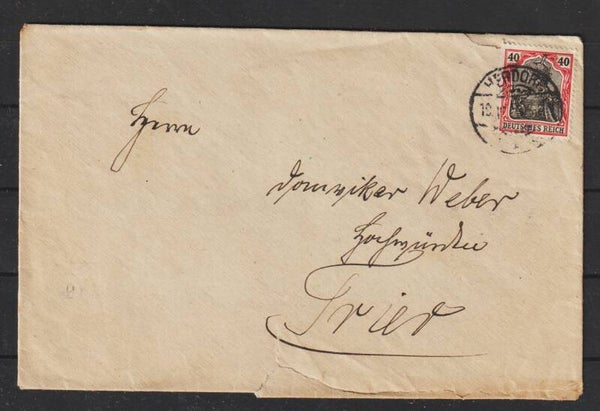 40 40
DEUTSCHES REICH
HERDORF
Herrn
Domvikar Weber
Hochwürden
Trier